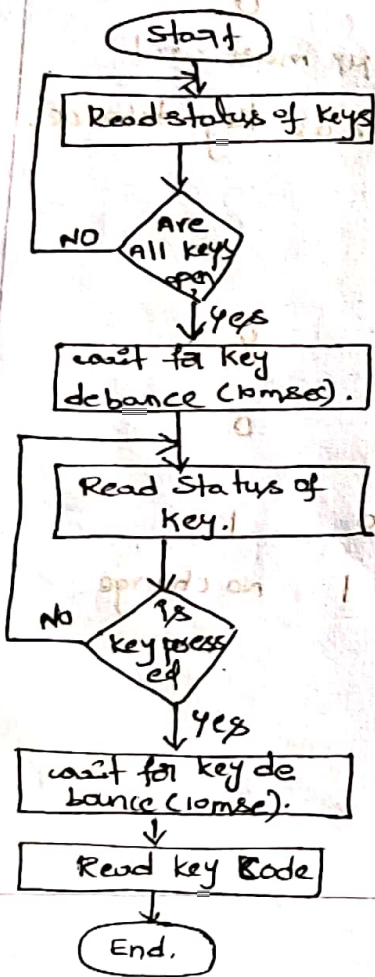 Start
Read status of keys
Are
All keys
open
NO
yes
wait for key
debance (10msec).
Read Status of
key.
Is
key press
ed
NO
yes
wait for key de
bance (10mse).
Read key Code
End.